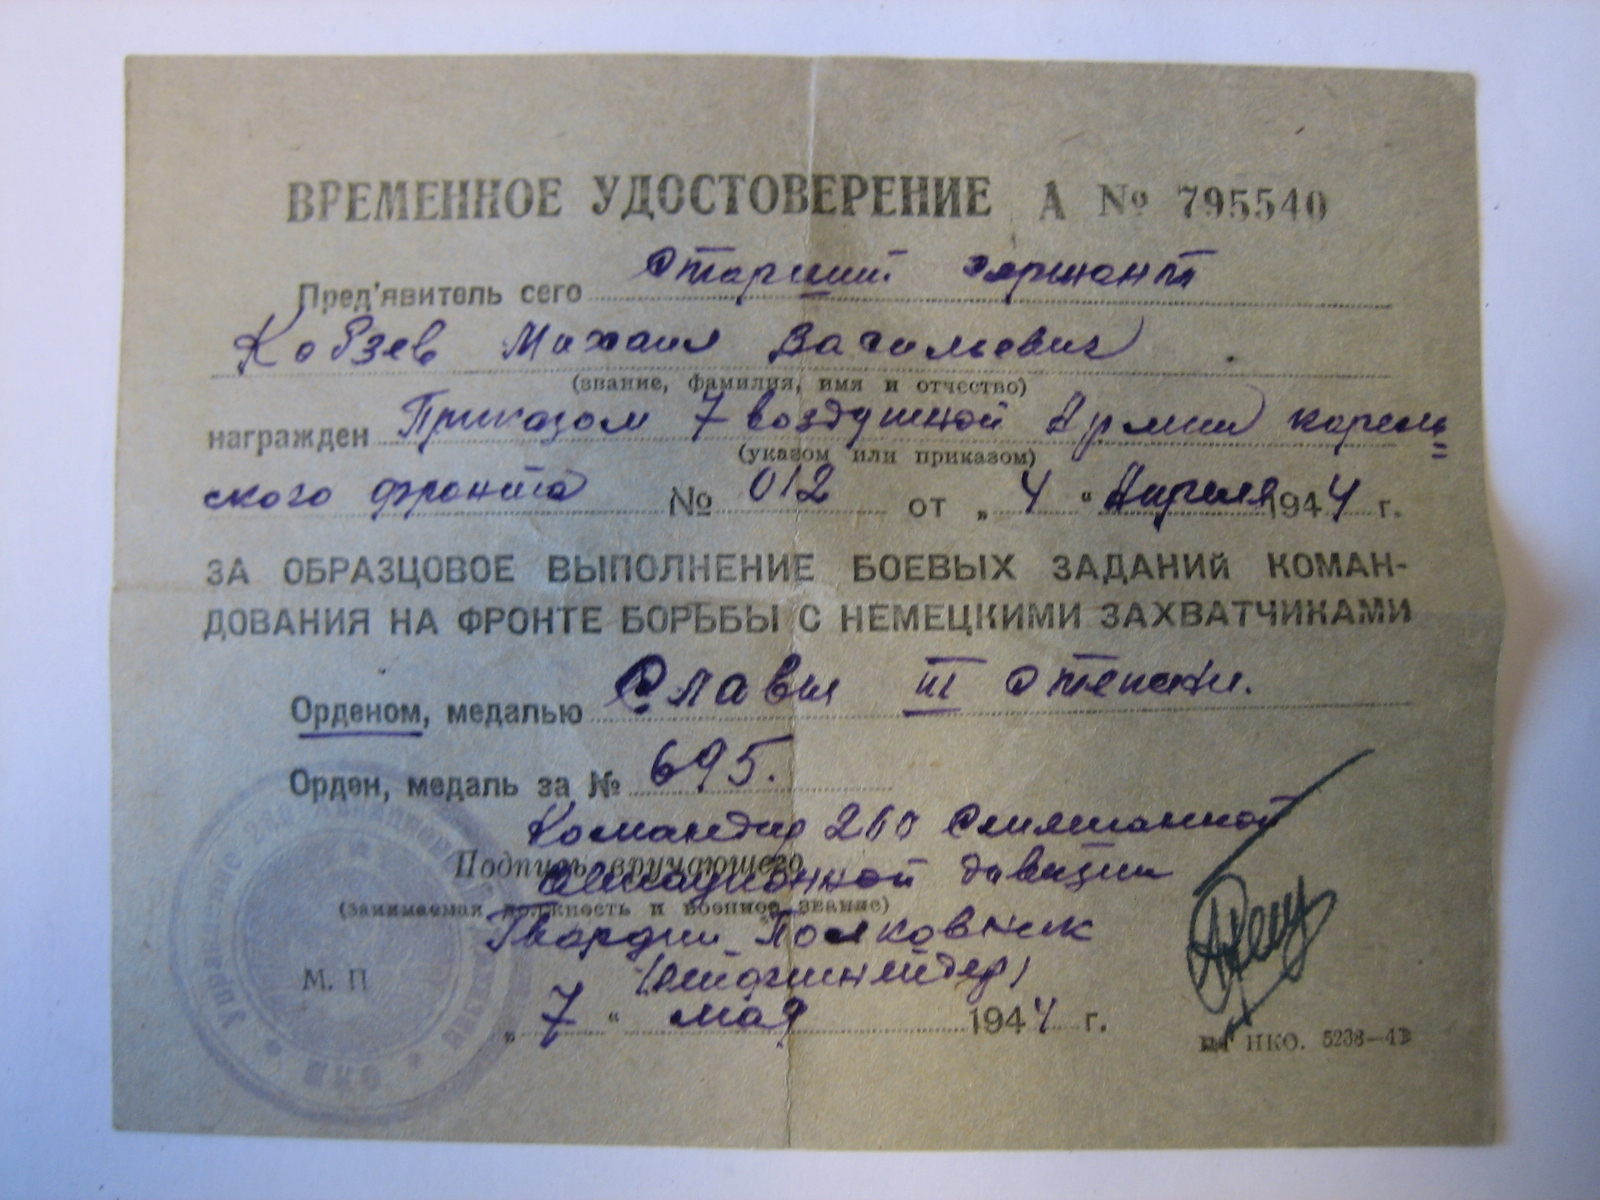 ВРЕМЕННОЕ УДОСТОВЕРЕНИЕ А № 795540
Пред'явитель сего Старший сержант
Кобзев Михаил Васильевич
(звание, фамилия, имя и отчество)
награжден Приказом 7 воздушной Армии карель
(указом или приказом)
ского фронта № 012 от „ 4 “ Апреля 1944 г.
ЗА ОБРАЗЦОВОЕ ВЫПОЛНЕНИЕ БОЕВЫХ ЗАДАНИЙ КОМАН-
ДОВАНИЯ НА ФРОНТЕ БОРЬБЫ С НЕМЕЦКИМИ ЗАХВАТЧИКАМИ
Орденом, медалью Славы III степени.
Орден, медаль за № 695.
Командир 260 Смешанной
Подпись вручающего
Авиационной дивизии
(занимаемая должность и военное звание)
Гвардии Полковник
М. П
„ 7 “ мая 1944 г.
НКО. 5238—43
Управление 260 Авиационной
НКО